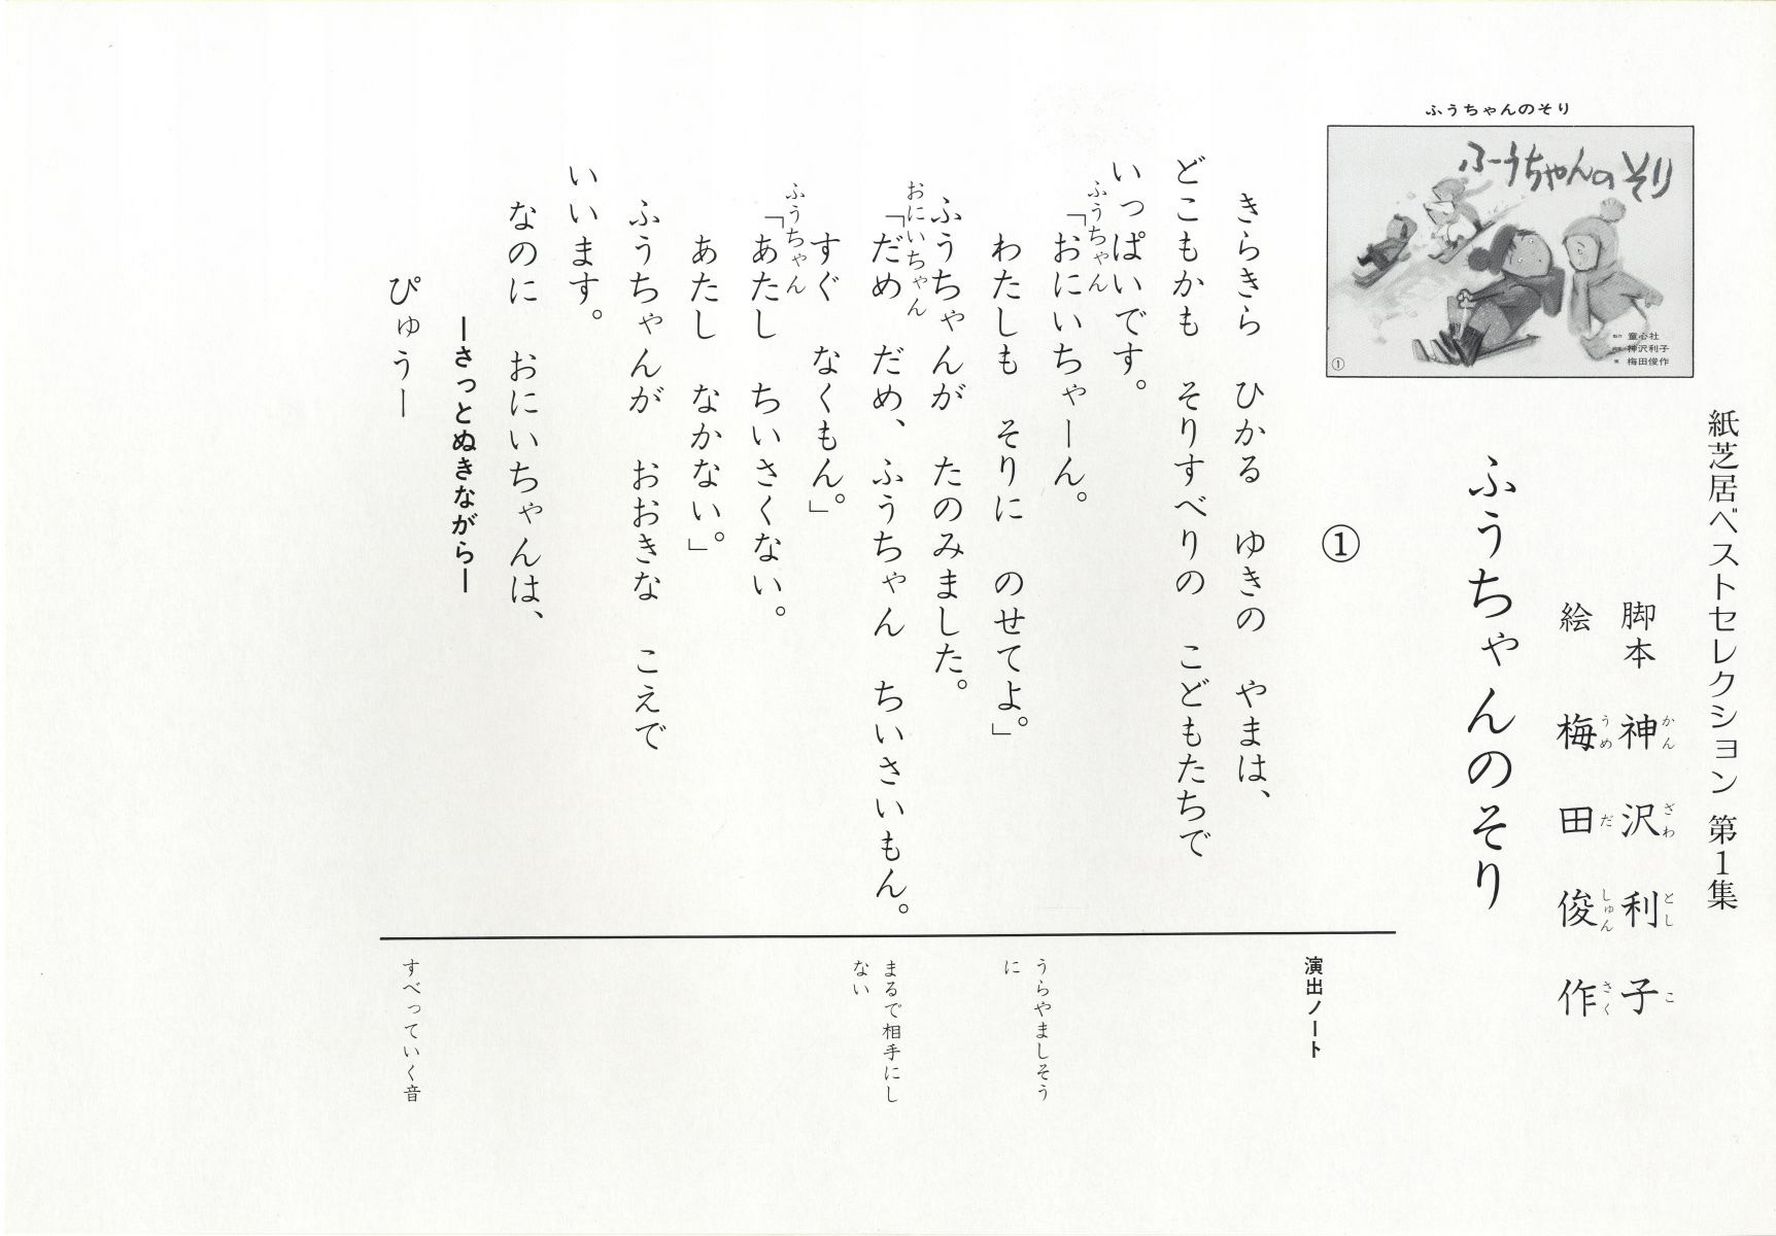 紙芝居ベストセレクション 第1集
脚本 神沢利子
かんざわとしこ
絵 梅田俊作
うめだしゅんさく
ふうちゃんのそり
ふうちゃんのそり
ふうちゃんのそり
童心社
神沢利子
梅田俊作
①
①
きらきら ひかる ゆきの やまは、
どこもかも そりすべりの こどもたちで
いっぱいです。
ふうちゃん
「おにいちゃーん。
わたしも そりに のせてよ。」
ふうちゃんが たのみました。
おにいちゃん
「だめ だめ、ふうちゃん ちいさいもん。
すぐ なくもん。」
ふうちゃん
「あたし ちいさくない。
あたし なかない。」
ふうちゃんが おおきな こえで
いいます。
なのに おにいちゃんは、
ーさっとぬきながらー
ぴゅうー
演出ノート
うらやましそう
に
まるで相手にし
ない
すべっていく音